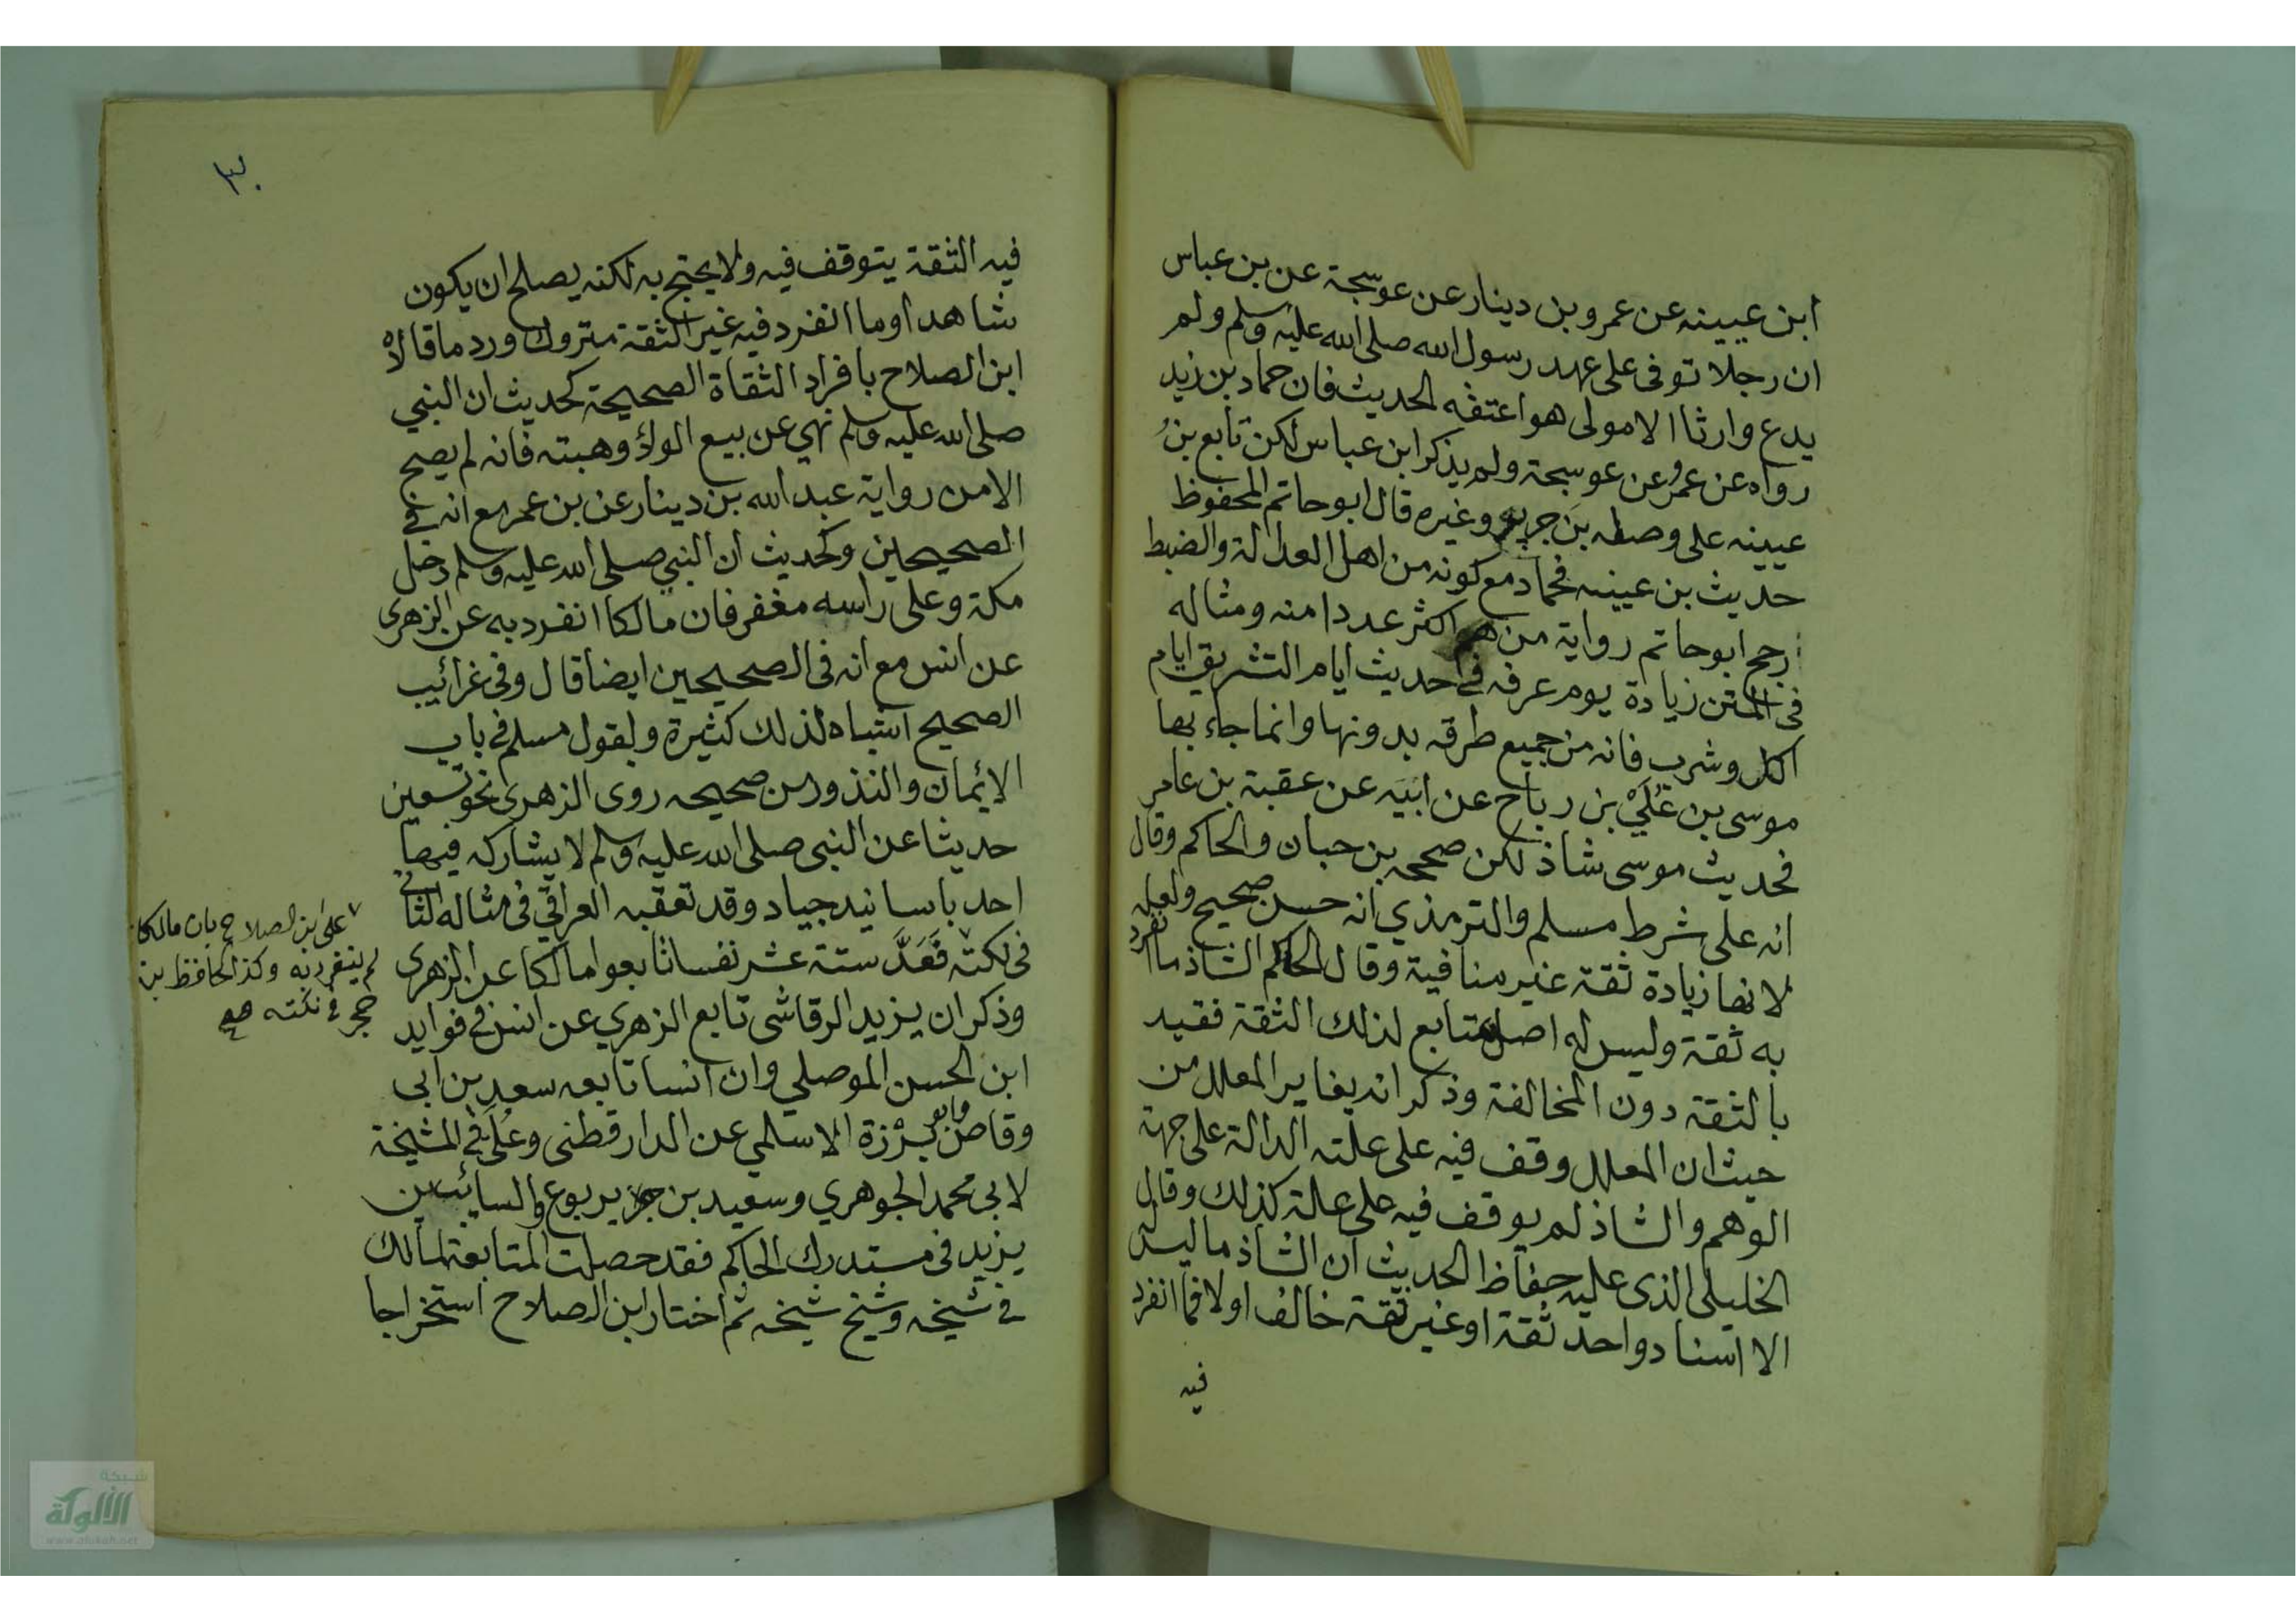 ابن عيينه عن عمرو بن دينار عن عوسجة عن بن عباس
ان رجلا توفى على عهد رسول الله صلى الله عليه وسلم ولم
يدع وارثا الا مولى هو اعتقه الحديث فان حماد بن زيد
رواه عن عمرو عن عوسجة ولم يذكر ابن عباس لكن تابع بن
عيينه على وصله بن جريج وغيره قال ابو حاتم المحفوظ
حديث بن عيينه فحماد مع كونه من اهل العدالة والضبط
رجح ابو حاتم رواية من هم اكثر عددا منه ومثاله
فى المتن زيادة يوم عرفه في حديث ايام التشريق ايام
اكل وشرب فانه من جميع طرقه بدونها وانما جاء بها
موسى بن عُلَيّ بن رباح عن ابيه عن عقبة بن عامر
فحديث موسى شاذ لكن صححه بن حبان والحاكم وقال
انه على شرط مسلم والترمذي انه حسن صحيح ولعله
لانها زيادة ثقة غير منافية وقال الحاكم الشاذ ما انفرد
به ثقة وليس له اصل متابع لذلك الثقة فقيد
بالثقة دون المخالفة وذكر انه يغاير المعلل من
حيث ان المعلل وقف فيه على علته الدالة على جهة
الوهم والشاذ لم يوقف فيه على علة كذلك وقال
الخليلى الذى عليه حفاظ الحديث ان الشاذ ما ليس له
الا اسناد واحد ثقة او غير ثقة خالف اولا فما انفرد
فيه
٣٠
فيه الثقة يتوقف فيه ولا يحتج به لكنه يصلح ان يكون
شاهدا وما انفرد فيه غير الثقة متروك ورد ما قالاه
ابن الصلاح بافراد الثقاة الصحيحة كحديث ان النبي
صلى الله عليه وسلم نهي عن بيع الولاؤ وهبته فانه لم يصح
الا من رواية عبد الله بن دينار عن بن عمر مع انه في
الصحيحين وكحديث ان النبي صلى الله عليه وسلم دخل
مكة وعلى راسه مغفر فان مالكا انفرد به عن الزهرى
عن انس مع انه فى الصحيحين ايضا قال وفى غرائيب
الصحيح اشباه لذلك كثيرة ولقول مسلم في باب
الائمان والنذور من صحيحه روى الزهرى نحو تسعين
حديثا عن النبى صلى الله عليه وسلم لا يشاركه فيها
احد باسانيد جياد وقد تعقبه العراقي فى مثاله الثاني
فى نكته فَعَدَّ ستة عشر نفسا تابعوا مالكا عن الزهرى
وذكر ان يزيد الرقاشى تابع الزهري عن انس في فوايد
ابن الحسن الموصلي وان انسا تابعه سعد بن ابى
وقاص وابو برزة الاسلمي عن الدارقطنى وعلى في المشيخة
لابى محمد الجوهري وسعيد بن يربوع والسائب بن
يزيد فى مستدرك الحاكم فقد حصلت المتابعة لمالك
في شيخه وشيخ شيخه ثم اختار ابن الصلاح استخراجا
على بن الصلاح بان مالكا
لم ينفرد به وكذا الحافظ بن
حجر في نكته صح
شبكة
الألوكة
www.alukah.net